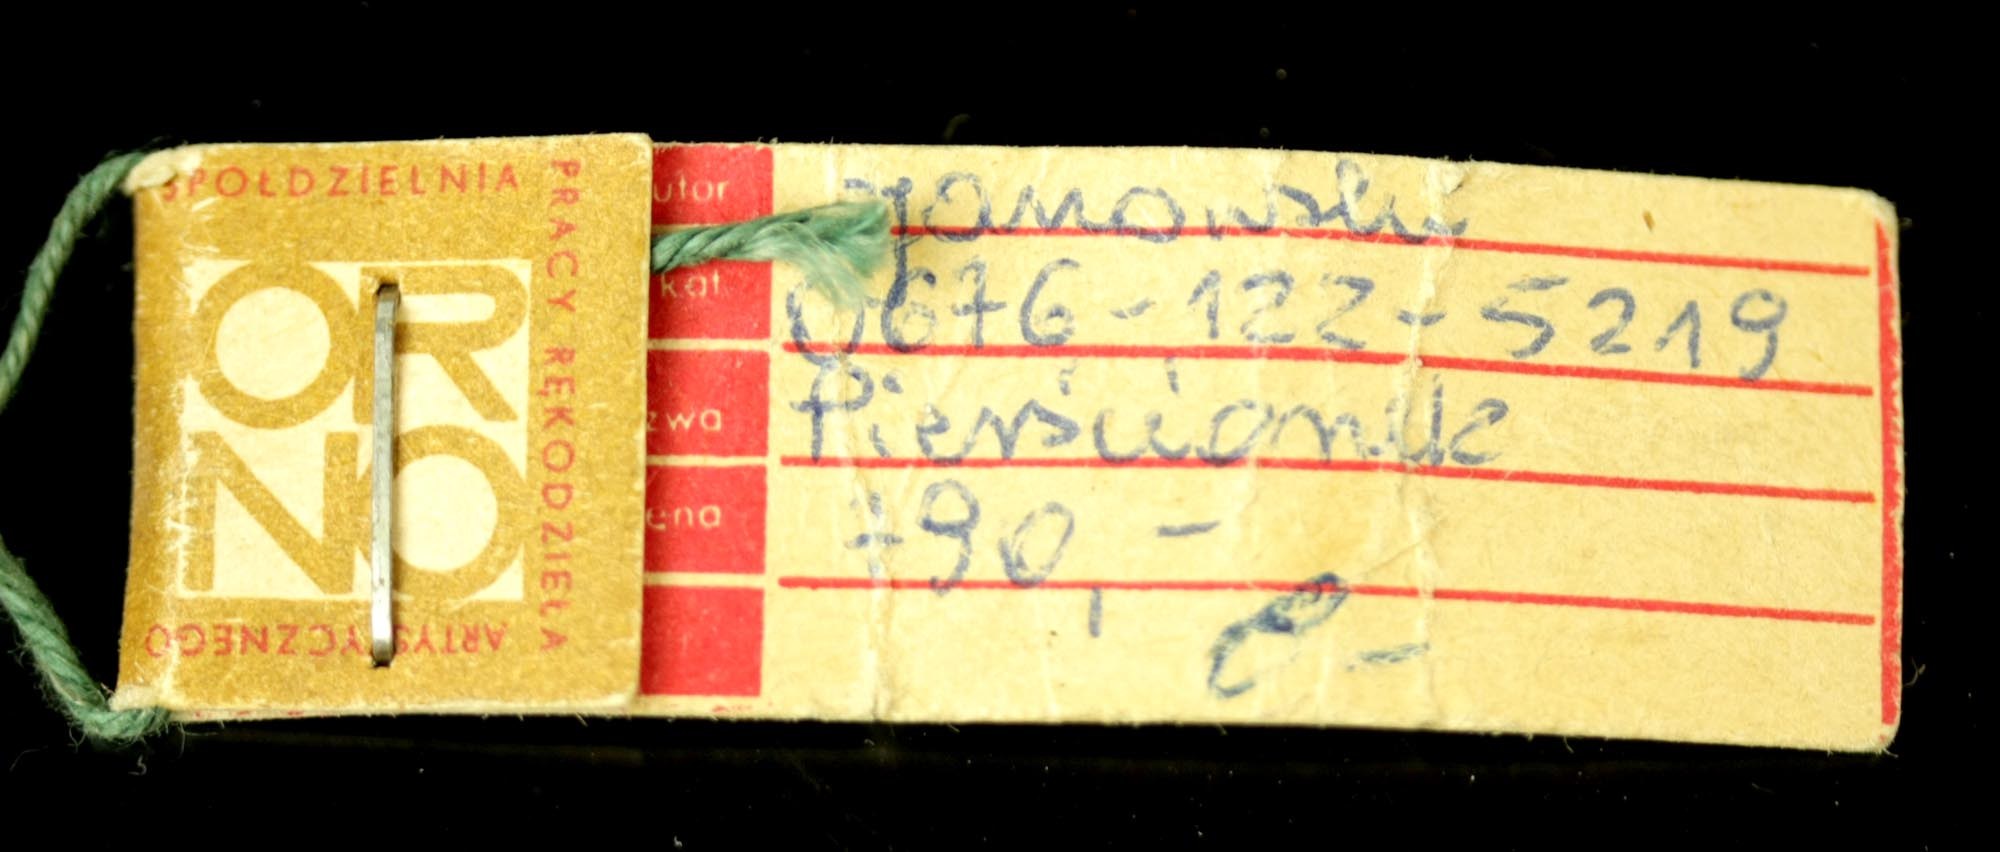 SPÓŁDZIELNIA
PRACY RĘKODZIEŁA
ARTYSTYCZNEGO
OR
NO
utor Janowski
kat. 0676-122-5219
zwa Pierścionek
ena 790,-